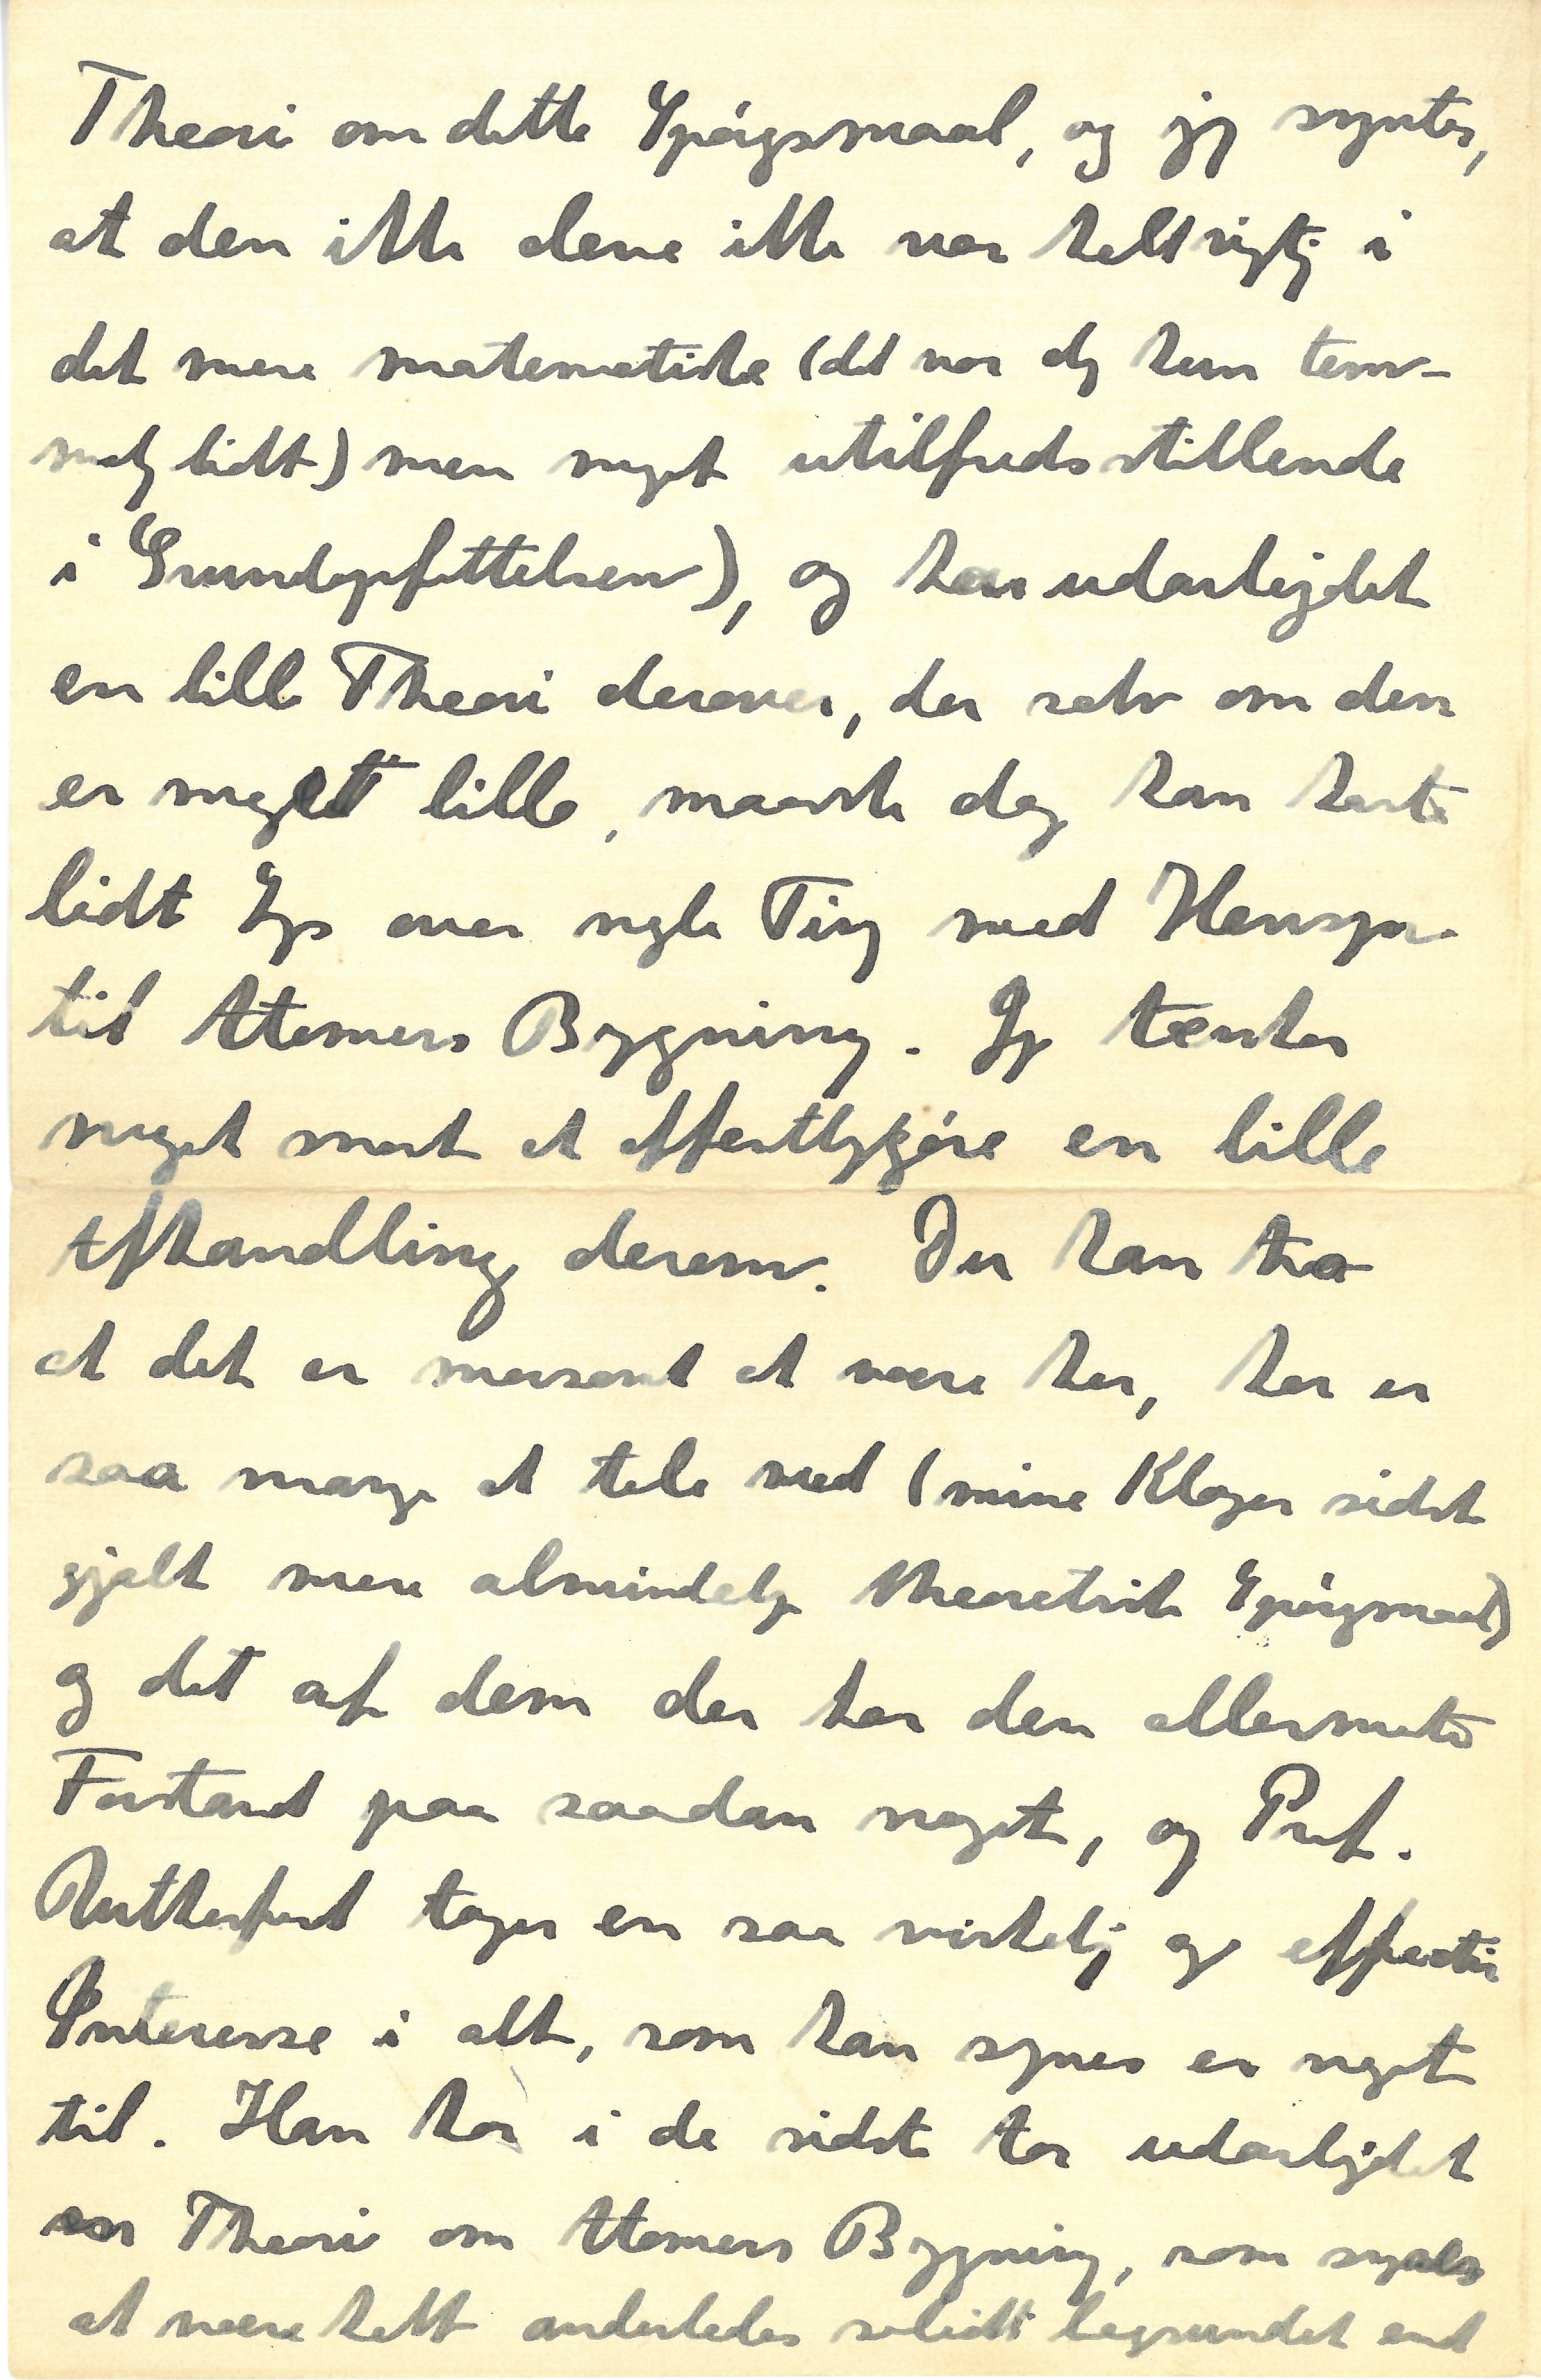 Theori om dette Spørgsmaal, og jeg syntes,
at den ikke alene ikke var helt rigtig i
det mere matematiske (det var dog kun tem-
melig lidt) men noget utilfredsstillende
i Grundopfattelsen), og har udarbejdet
en lille Theori derover, der selv om den
er meget lille, maaske dog kan kaste
lidt Lys over nogle Ting med Hensyn
til Atomers Bygning. Jeg tænker
meget snart at offentliggøre en lille
Afhandling derom. Du kan tro
at det er morsomt at være her, her er
saa mange at tale med (mine Klager sidst
gjalt mere almindelige theoretiske Spørgsmaal)
og det af dem der har den allermeste
Forstand paa saadan noget, og Prof.
Rutherford tager en saa virkelig og effectiv
Interesse i alt, som han synes er noget
til. Han har i de sidste Aar udarbejdet
en Theori om Atomers Bygning, som synes
at være helt anderledes solidt begrundet end